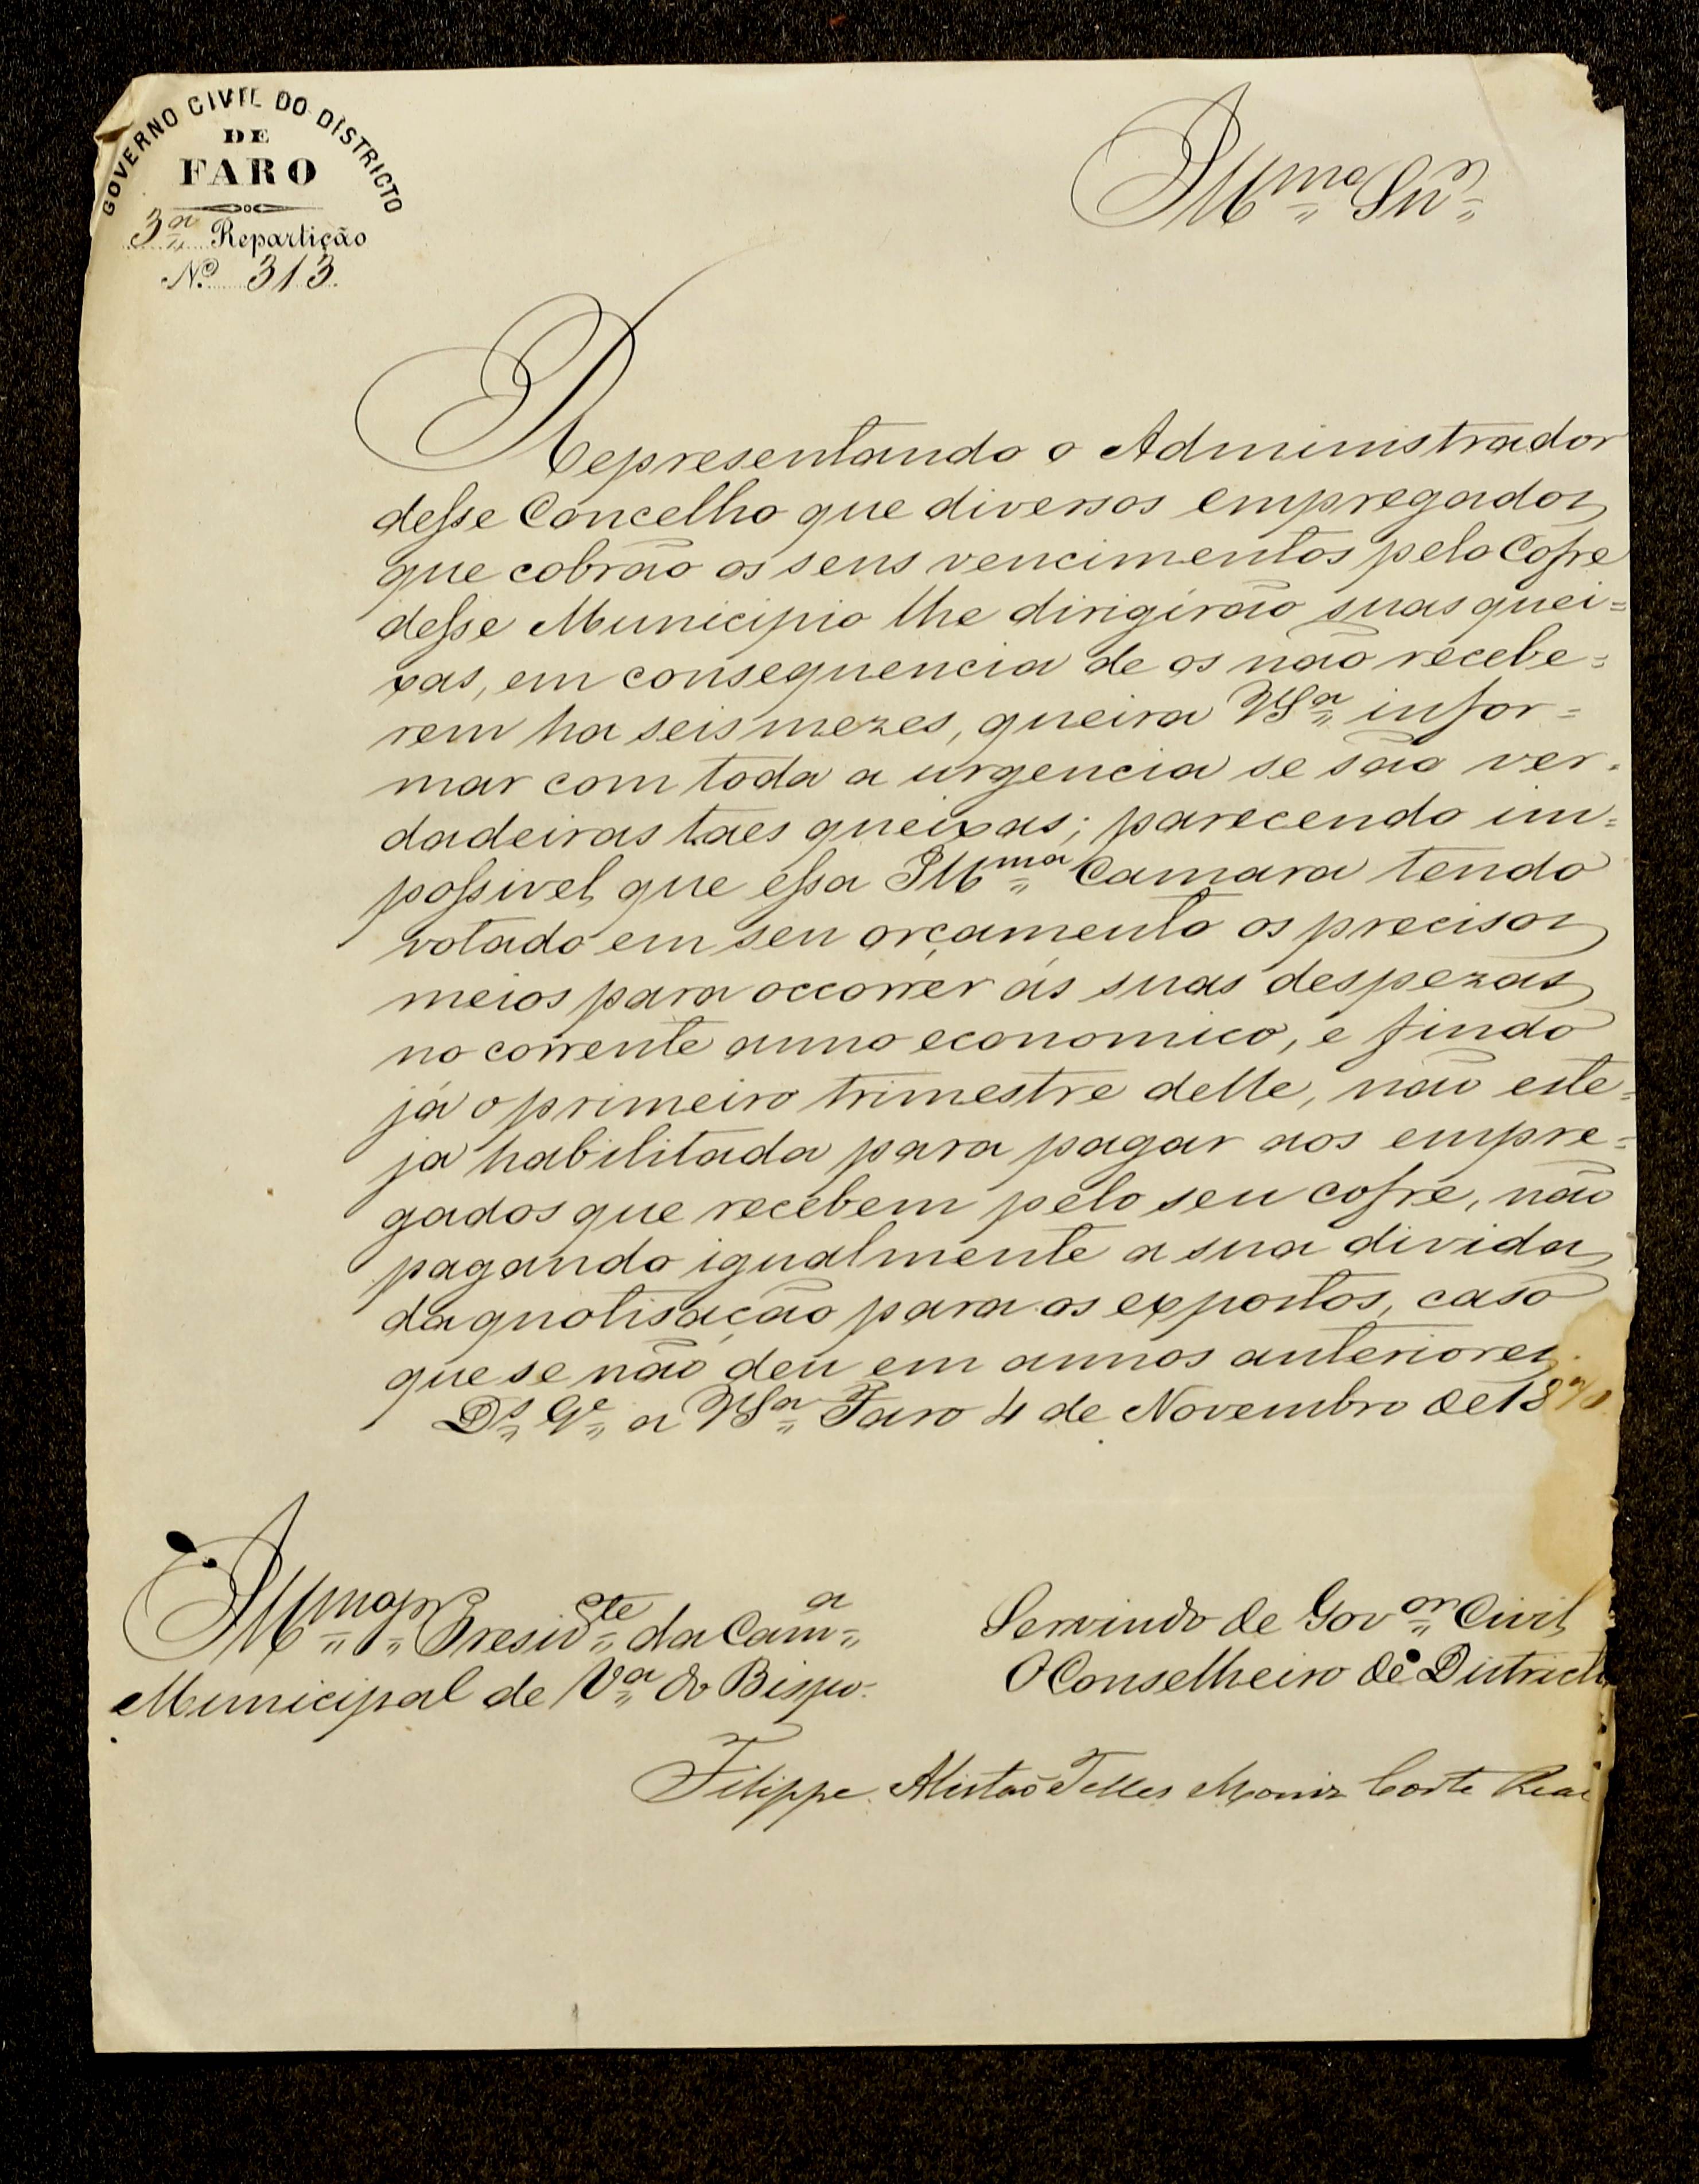 GOVERNO CIVIL DO DISTRICTO
DE
FARO
3ª Repartição
Nº 313.
Illmo Snr
Representando o Administrador
desse Concelho que diversos empregados
que cobrão os seus vencimentos pelo Cofre
desse Municipio lhe dirigírão suas quei=
xas, em consequencia de os não recebe=
rem ha seis mezes, queira VSª infor=
mar com toda a urgencia se são ver=
dadeiras taes queixas; parecendo im=
possivel que essa Illma Camara tendo
votado em seu orçamento os precisos
meios para occorrer ás suas despezas
no corrente anno economico, e findo
já o primeiro trimestre delle, não este=
ja habilitada para pagar aos empre=
gados que recebem pelo seu cofre, não
pagando igualmente a sua divida
da quotisação para os expostos, caso
que se não deu em annos anteriores.
Ds Ge a VSª Faro 4 de Novembro de 1870
Illmo Sr Presidte da Camª
Municipal de Vª do Bispo.
Servindo de Govor Civil
O Conselheiro de Districto
Filippe Telles Moniz Corte Real